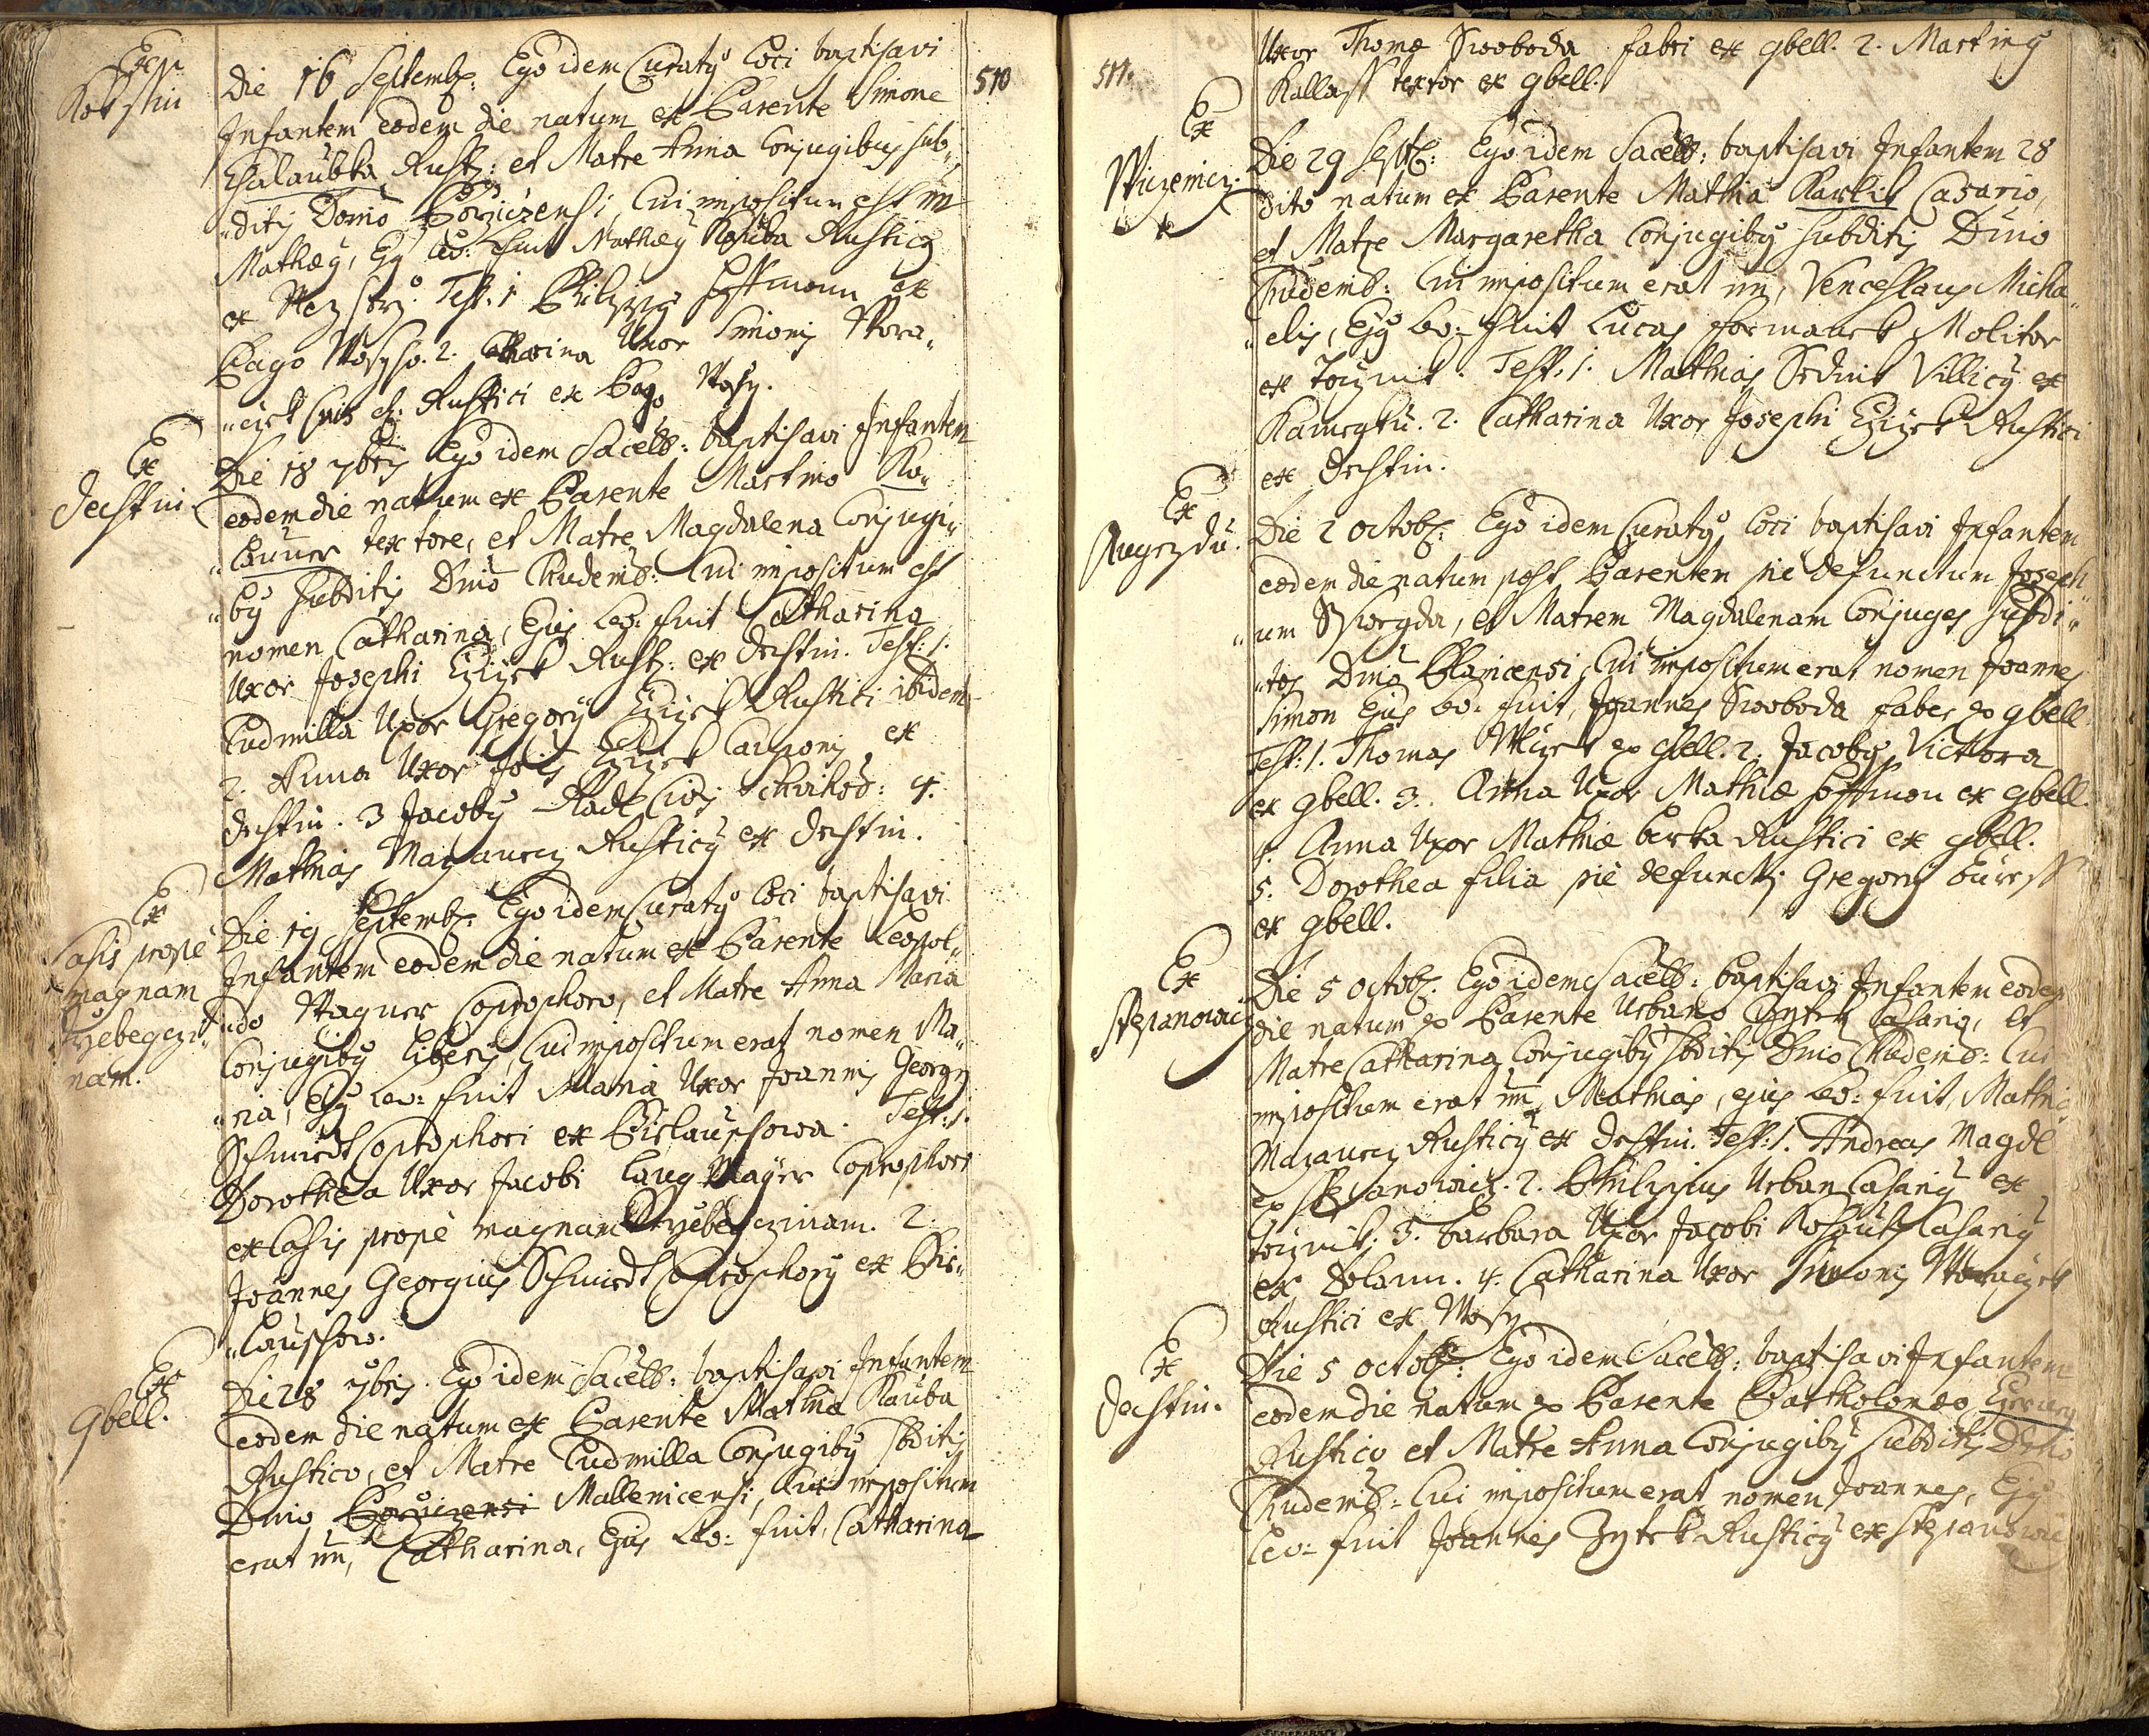 510
Ex
Kokschin
Die 16 Septemb: Ego idem Curatus loci baptisavi
Infantem eodem die natum ex Parente Simone
Chalaubka Rust: et Matre Anna Conjugibus sub„
„ditis Domō Poržiczensi, Cui impositum est nn
Mathæus, Ejus lev: fuit Mathæus Kauba Rusticus
ex Test: 1 Philippus Hoffmonn ex
Pago Wosy. 2. Catharina Uxor Simonis Wora„
„czek Rustici ex Pago Wosy.
Ex
Destin.
Die 18 7bris Ego idem Sacell: baptisavi Infantem
eodem die natum ex Parente Martino Ko„
„launer textore, et Matre Magdalena Conjugi„
„bus subditis Dnio Chudenic: Cui impositum est
nomen Catharina, Ejus lev: fuit Catharina
Uxor Josephi Czizek Rust: ex Destin. Test: 1.
Ludmilla Uxor Gregorÿ Czizek Rustici ibidem
2. Anna Uxor Jois Czizek Cauponis ex
Destin. 3 Jacobus Radl Civis Schwihov: 4.
Mathias Mazaurez Rusticus ex Destin.
Ex
Casis propè
magnam
Przebeczi„
nam.
Die 19 Septemb: Ego idem Curatus loci baptisavi
Infantem eodem die natum ex Parente Leopol„
„do Wagner Coprophoro, et Matre Anna Maria
Conjugibus Liberis, Cui impositum erat nomen Ma„
„ria, Ejus lev: fuit Maria Uxor Joannis Georgÿ
Schmidt Coprophori ex Pislauschowa. Test: 1.
Dorothea Uxor Jacobi Lang Mayer Coprophori
ex Casis propè magnam Przebeczinam. 2.
Joannes Georgius Schmidt Coprophorus ex Pis„
„lauschow.
Ex
Gbell.
Die 28 7bris. Ego idem Sacell: baptisavi Infantem
eodem die natum ex Parente Mathia Kauba
Rustico, et Matre Ludmilla Conjugibus Sbditis
Dnio Poržizensi Mallenicensi, Cui impositum
erat nn, Catharina, Ejus Lev: fuit, Catharina
511.
Uxor Thomæ Swoboda fabri ex Gbell. 2. Martinus
Kallass textor ex Gbell.
Ex
Wiczenicz.
Die 29 Septb: Ego idem Sacell: baptisavi Infantem 28
dito natum ex Parente Mathia Karlik Casario,
et Matre Margaretha Conjugibus subditis Dnio
Chudenic: Cui impositum erat nn, Venceslaus Micha„
„elis, Ejus lev: fuit Lucas Formanek Molitor
ex Test: 1. Mathias Sedink Villicus ex
Kameyku. 2. Catharina Uxor Josephi Czizek Rustici
ex Destin.
Ex
Augezdu.
Die 2 Octob: Ego idem Curatus loci baptisavi Infantem
eodem die natum post Parentem pie defunctum Joseph„
„um Sswegda, et Matrem Magdalenam Conjuges subdi„
„tos Dnio Planicensi, Cui impositum erat nomen Joannes
Simon Ejus lev: fuit, Joannes Swoboda faber ex Gbell
Test: 1. Thomas Wlczek ex Gbell. 2. Jacobus Victora
ex Gbell. 3. Anna Uxor Mathiæ Hoffmon ex Gbell.
4. Anna Uxor Mathiæ Berka Rustici ex Gbell.
5. Dorothea filia piè defuncti Gregory Buress
ex Gbell.
Ex
Stepanowicz
Die 5 Octob: Ego idem Sacell: baptisavi Infantem eodem
die natum ex Parente Urbano Zytek Casario, et
Matre Catharina Conjugibus Sbditis Dnio Chudenic: Cui
impositum erat nn, Mathias, ejus lev: fuit, Mathias
Mazaurez Rusticus ex Destin. Test: 1. Andreas Magdl
ex Stepanowicz. 2. Philippus Urban Casarius ex
3. Barbara Uxor Jacobi Kohaut Casarÿ
ex Dolann. 4. Catharina Uxor Simonis Woraczek
Rustici ex Wosy
Ex
Destin.
Die 5 Octob: Ego idem Sacell: baptisavi Infantem
eodem die natum ex Parente Bartholomæo
Rustico et Matre Anna Conjugibus subditis Dnio
Chudenic: Cui impositum erat nomen Joannes, Ejus
Lev: fuit Joannes Zytek Rusticus ex Stepanowic